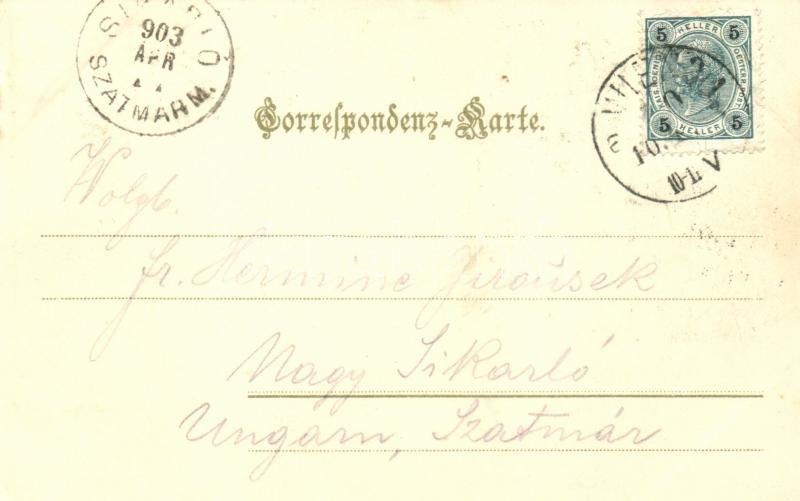 SIKARLÓ
903
APR
SZATMÁR M.
5 HELLER 5
KAIS. KOENIGL. OESTERR. POST
5 HELLER 5
10-11 V
Correspondenz-Karte.
Wolgb.
Fr. Hermine Jiroüsek
Nagy Sikarló
Ungarn, Szatmár